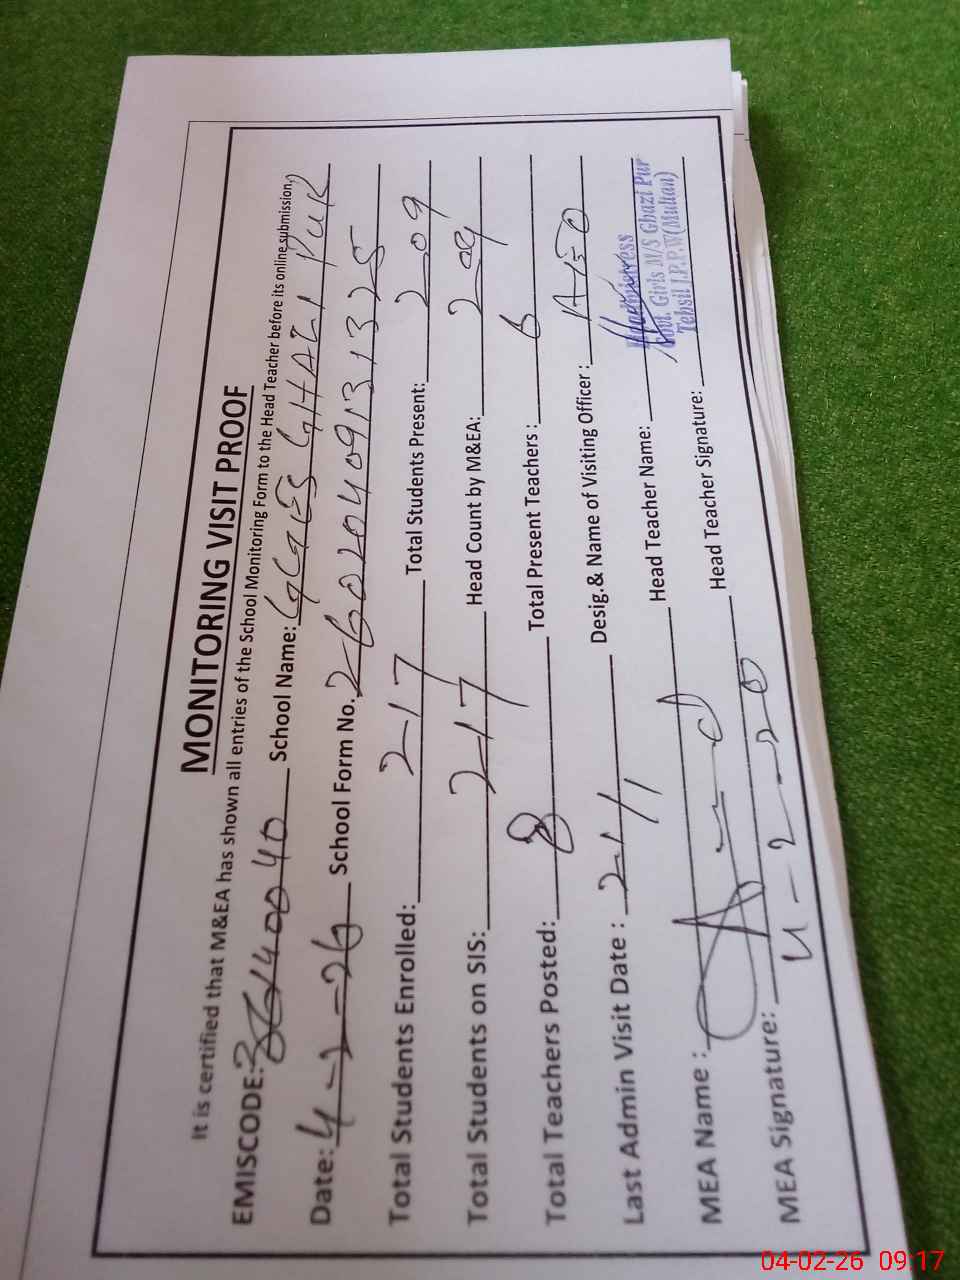 MONITORING VISIT PROOF
It is certified that M&EA has shown all entries of the School Monitoring Form to the Head Teacher before its online submission.
EMISCODE: 36140040 School Name: GGES GHAZI PUR
Date: 4-2-26 School Form No. 26020409131325
Total Students Enrolled: 217 Total Students Present: 209
Total Students on SIS: 217 Head Count by M&EA: 209
Total Teachers Posted: 8 Total Present Teachers: 6
Last Admin Visit Date: 21/1 Desig.& Name of Visiting Officer: AEO
MEA Name: Head Teacher Name:
Headmistress
Govt. Girls M/S Ghazi Pur
Tehsil J.P.P.W (Multan)
MEA Signature: Head Teacher Signature:
4-2-20
04-02-26 09:17